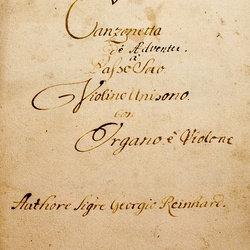 Canzonetta
de Adventu.
a
Basso Solo
Violino Unisono.
con
Organo è Violone
Authore Sigre Georgio Reinhard.